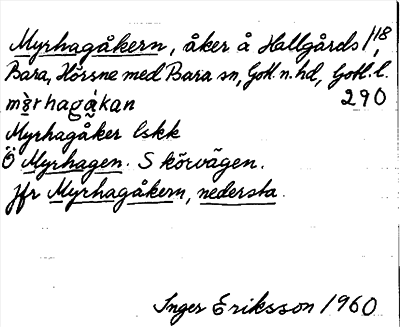 Myrhagåkern, åker å Hallgårds 1/18,
Bara, Hörsne med Bara sn, Gotl. n. hd, Gotl. l.
290
Myrhagåker lskk
Ö Myrhagen. S körvägen.
Jfr Myrhagåkern, nedersta.
Inger Eriksson 1960